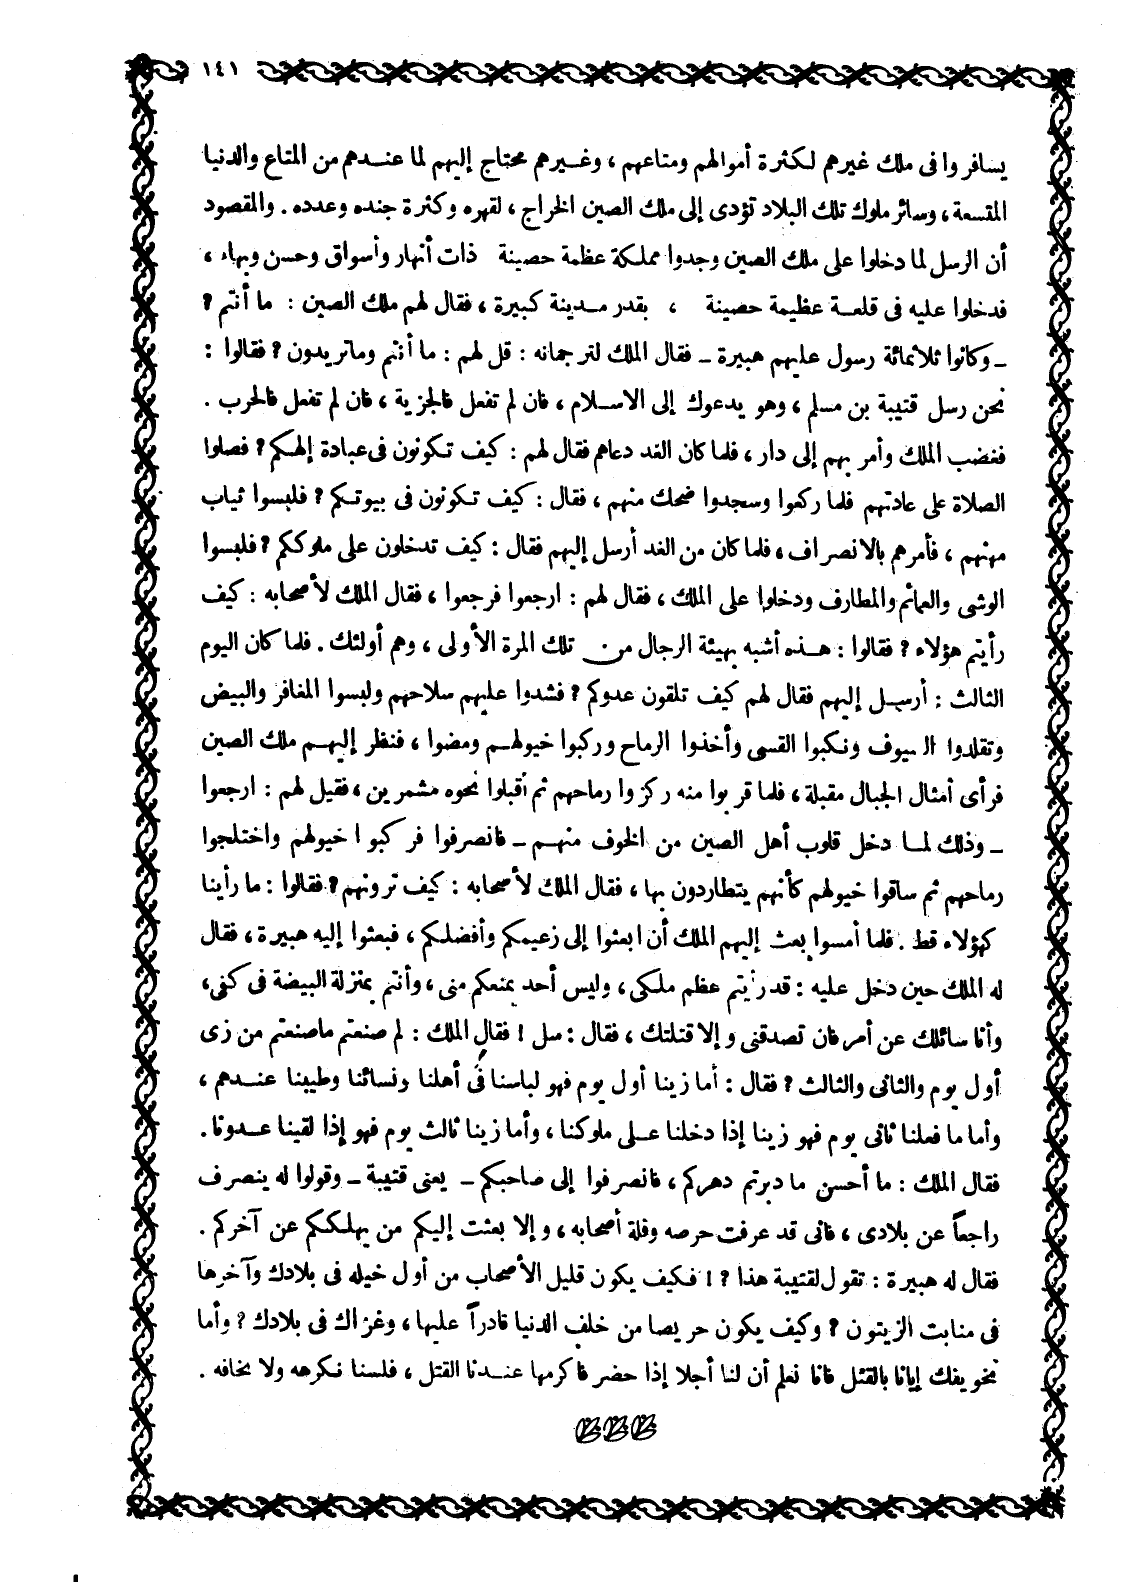 ١٤١
يسافروا فى ملك غيرهم لكثرة أموالهم ومتاعهم ، وغيرهم محتاج إليهم لما عندهم من المتاع والدنيا
المتسعة ، وسائر ملوك تلك البلاد تؤدى إلى ملك الصين الخراج ، لقهره وكثرة جنده وعدده . والمقصود
أن الرسل لما دخلوا على ملك الصين وجدوا مملكة عظمة حصينة ذات أنهار وأسواق وحسن وبهاء ،
فدخلوا عليه فى قلعة عظيمة حصينة ، بقدر مدينة كبيرة ، فقال لهم ملك الصين : ما أنتم ؟
ـ وكانوا ثلاثمائة رسول عليهم هبيرة ـ فقال الملك لترجمانه : قل لهم : ما أنتم وما تريدون ؟ فقالوا :
نحن رسل قتيبة بن مسلم ، وهو يدعوك إلى الاسلام ، فان لم تفعل فالجزية ، فان لم تفعل فالحرب .
فغضب الملك وأمر بهم إلى دار ، فلما كان الغد دعاهم فقال لهم : كيف تكونون فى عبادة إلهكم ؟ فصلوا
الصلاة على عادتهم فلما ركعوا وسجدوا ضحك منهم ، فقال : كيف تكونون فى بيوتكم ؟ فلبسوا ثياب
مهنهم ، فأمرهم بالانصراف ، فلما كان من الغد أرسل إليهم فقال : كيف تدخلون على ملوككم ؟ فلبسوا
الوشى والعمائم والمطارف ودخلوا على الملك ، فقال لهم : ارجعوا فرجعوا ، فقال الملك لأصحابه : كيف
رأيتم هؤلاء ؟ فقالوا : هذه أشبه بهيئة الرجال من تلك المرة الأولى ، وهم أولئك . فلما كان اليوم
الثالث : أرسل إليهم فقال لهم كيف تلقون عدوكم ؟ فشدوا عليهم سلاحهم ولبسوا المغافر والبيض
وتقلدوا السيوف ونكبوا القسى وأخذوا الرماح وركبوا خيولهم ومضوا ، فنظر إليهم ملك الصين
فرأى أمثال الجبال مقبلة ، فلما قربوا منه ركزوا رماحهم ثم أقبلوا نحوه مشمرين ، فقيل لهم : ارجعوا
ـ وذلك لما دخل قلوب أهل الصين من الخوف منهم ـ فانصرفوا فركبوا خيولهم واختلجوا
رماحهم ثم ساقوا خيولهم كأنهم يتطاردون بها ، فقال الملك لأصحابه : كيف ترونهم ؟ فقالوا : ما رأينا
كهؤلاء قط . فلما أمسوا بعث إليهم الملك أن ابعثوا إلى زعيمكم وأفضلكم ، فبعثوا إليه هبيرة ، فقال
له الملك حين دخل عليه : قد رأيتم عظم ملكى ، وليس أحد يمنعكم منى ، وأنتم بمنزلة البيضة فى كفى ،
وأنا سائلك عن أمر فان تصدقنى وإلا قتلتك ، فقال : سل ! فقال الملك : لم صنعتم ماصنعتم من زى
أول يوم والثانى والثالث ؟ فقال : أما زينا أول يوم فهو لباسنا فى أهلنا ونسائنا وطيبنا عندهم ،
وأما ما فعلنا ثانى يوم فهو زينا إذا دخلنا على ملوكنا ، وأما زينا ثالث يوم فهو إذا لقينا عدونا .
فقال الملك : ما أحسن ما دبرتم دهركم ، فانصرفوا إلى صاحبكم ـ يعنى قتيبة ـ وقولوا له ينصرف
راجعاً عن بلادى ، فانى قد عرفت حرصه وقلة أصحابه ، وإلا بعثت إليكم من يهلككم عن آخركم .
فقال له هبيرة : تقول لقتيبة هذا ؟! فكيف يكون قليل الأصحاب من أول خيله فى بلادك وآخرها
فى منابت الزيتون ؟ وكيف يكون حريصا من خلف الدنيا قادراً عليها ، وغزاك فى بلادك ؟ وأما
تخويفك إيانا بالقتل فانا نعلم أن لنا أجلا إذا حضر فأكرمها عندنا القتل ، فلسنا نكرهه ولا نخافه .